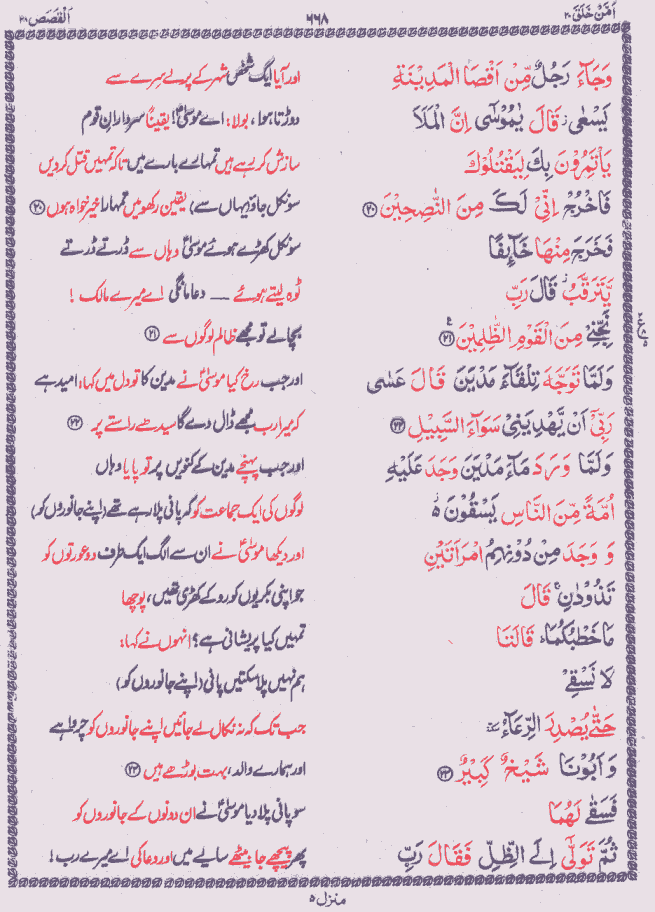 اَمَّنْ خَلَقَ ٢٠ ٦٦٨ اَلْقَصَص ٢٨
وَجَآءَ رَجُلٌ مِّنْ اَقْصَا الْمَدِيْنَةِ اور آیا ایک شخص شہر کے پرلے سِرے سے
يَسْعٰى ز قَالَ يٰمُوْسٰٓى اِنَّ الْمَلَاَ دوڑتا ہوا ، بولا: اے موسیٰؑ! یقیناً سردارانِ قوم
يَاْتَمِرُوْنَ بِكَ لِيَقْتُلُوْكَ سازش کر رہے ہیں تمہارے بارے میں تاکہ تمہیں قتل کردیں
فَاخْرُجْ اِنِّيْ لَكَ مِنَ النّٰصِحِيْنَ ٢٠ سو نکل جاؤ (یہاں سے) یقین رکھو میں تمہارا خیر خواہ ہوں ٢٠
فَخَرَجَ مِنْهَا خَآئِفًا سو نکل کھڑے ہوئے موسیٰؑ وہاں سے ڈرتے ڈرتے
يَّتَرَقَّبُ ز قَالَ رَبِّ ٹوہ لیتے ہوئے — دعا مانگی اے میرے مالک !
نَجِّنِيْ مِنَ الْقَوْمِ الظّٰلِمِيْنَ ٢١ بچالے تو مجھے ظالم لوگوں سے ٢١
وَلَمَّا تَوَجَّهَ تِلْقَآءَ مَدْيَنَ قَالَ عَسٰى اور جب رخ کیا موسیٰؑ نے مدین کا تو دل میں کہا: امید ہے
رَبِّيْٓ اَنْ يَّهْدِيَنِيْ سَوَآءَ السَّبِيْلِ ٢٢ کہ میرا رب مجھے ڈال دے گا سیدھے راستے پر ٢٢
وَلَمَّا وَرَدَ مَآءَ مَدْيَنَ وَجَدَ عَلَيْهِ اور جب پہنچے مدین کے کنویں پر تو پایا وہاں
اُمَّةً مِّنَ النَّاسِ يَسْقُوْنَ لوگوں کی ایک جماعت کو کہ پانی پلا رہے تھے (اپنے جانوروں کو)
وَ وَجَدَ مِنْ دُوْنِهِمُ امْرَاَتَيْنِ اور دیکھا موسیٰؑ نے ان سے الگ ایک طرف دو عورتوں کو
تَذُوْدٰنِ قَالَ جو اپنی بکریوں کو روکے کھڑی تھیں، پوچھا
مَا خَطْبُكُمَا قَالَتَا تمہیں کیا پریشانی ہے؟ انہوں نے کہا:
لَا نَسْقِيْ ہم نہیں پلا سکتیں پانی (اپنے جانوروں کو)
حَتّٰى يُصْدِرَ الرِّعَآءُ جب تک کہ نہ نکال لے جائیں اپنے جانوروں کو چرواہے
وَاَبُوْنَا شَيْخٌ كَبِيْرٌ ٢٣ اور ہمارے والد، بہت بوڑھے ہیں ٢٣
فَسَقٰى لَهُمَا سو پانی پلا دیا موسیٰؑ نے ان دونوں کے جانوروں کو
ثُمَّ تَوَلّٰٓى اِلَى الظِّلِّ فَقَالَ رَبِّ پھر پیچھے جا بیٹھے سایے میں اور دعا کی اے میرے رب !
منزل ٥